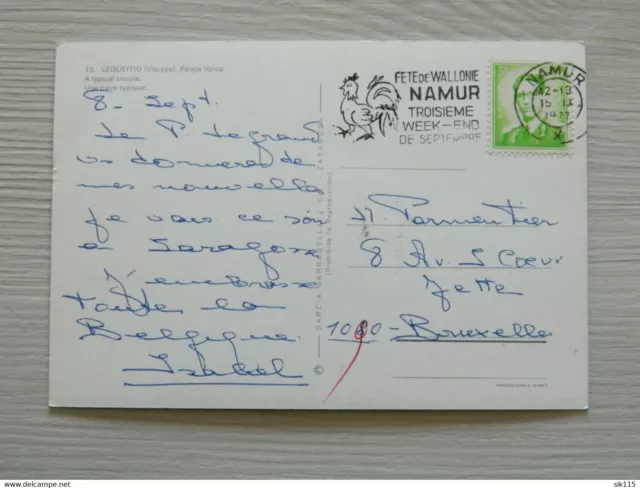 15 - LEQUEITIO (Vizcaya). Pareja típica
A typical couple.
Une paire typique.
8- Sept.
Le P. Legrand
vs donnera de
mes nouvelles
Je vais ce soir
a Saragosse
J'embrasse
toute la
Belgique.
Isabel
GARCIA GARRABELLA
ZARAGOZA
(Prohibida la Reproducción)
©
FETE DE WALLONIE
NAMUR
TROISIEME
WEEK-END
DE SEPTEMBRE
NAMUR
12-13
15 IX
X
M. Parmentier
8 Av. S Coeur
Jette
1080 - Bruxelles
www.delcampe.net
sik115